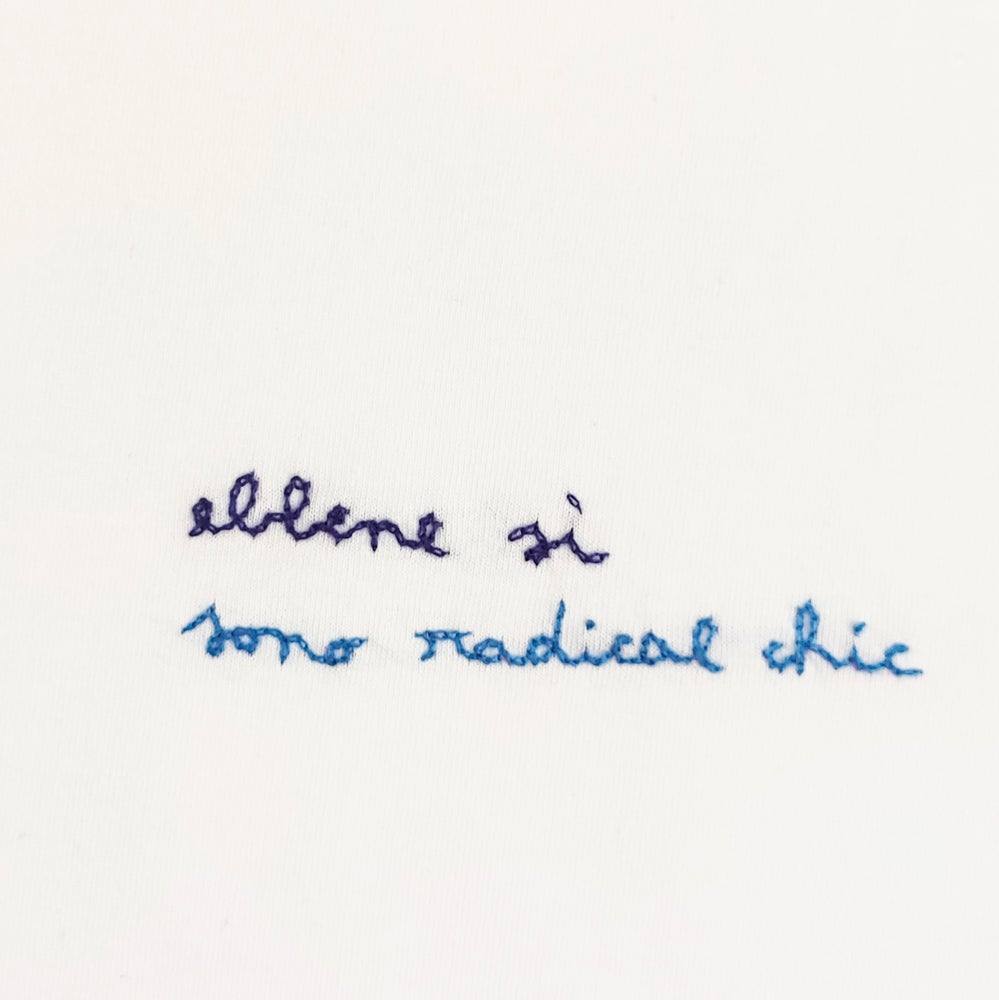 ebbene si
sono radical chic